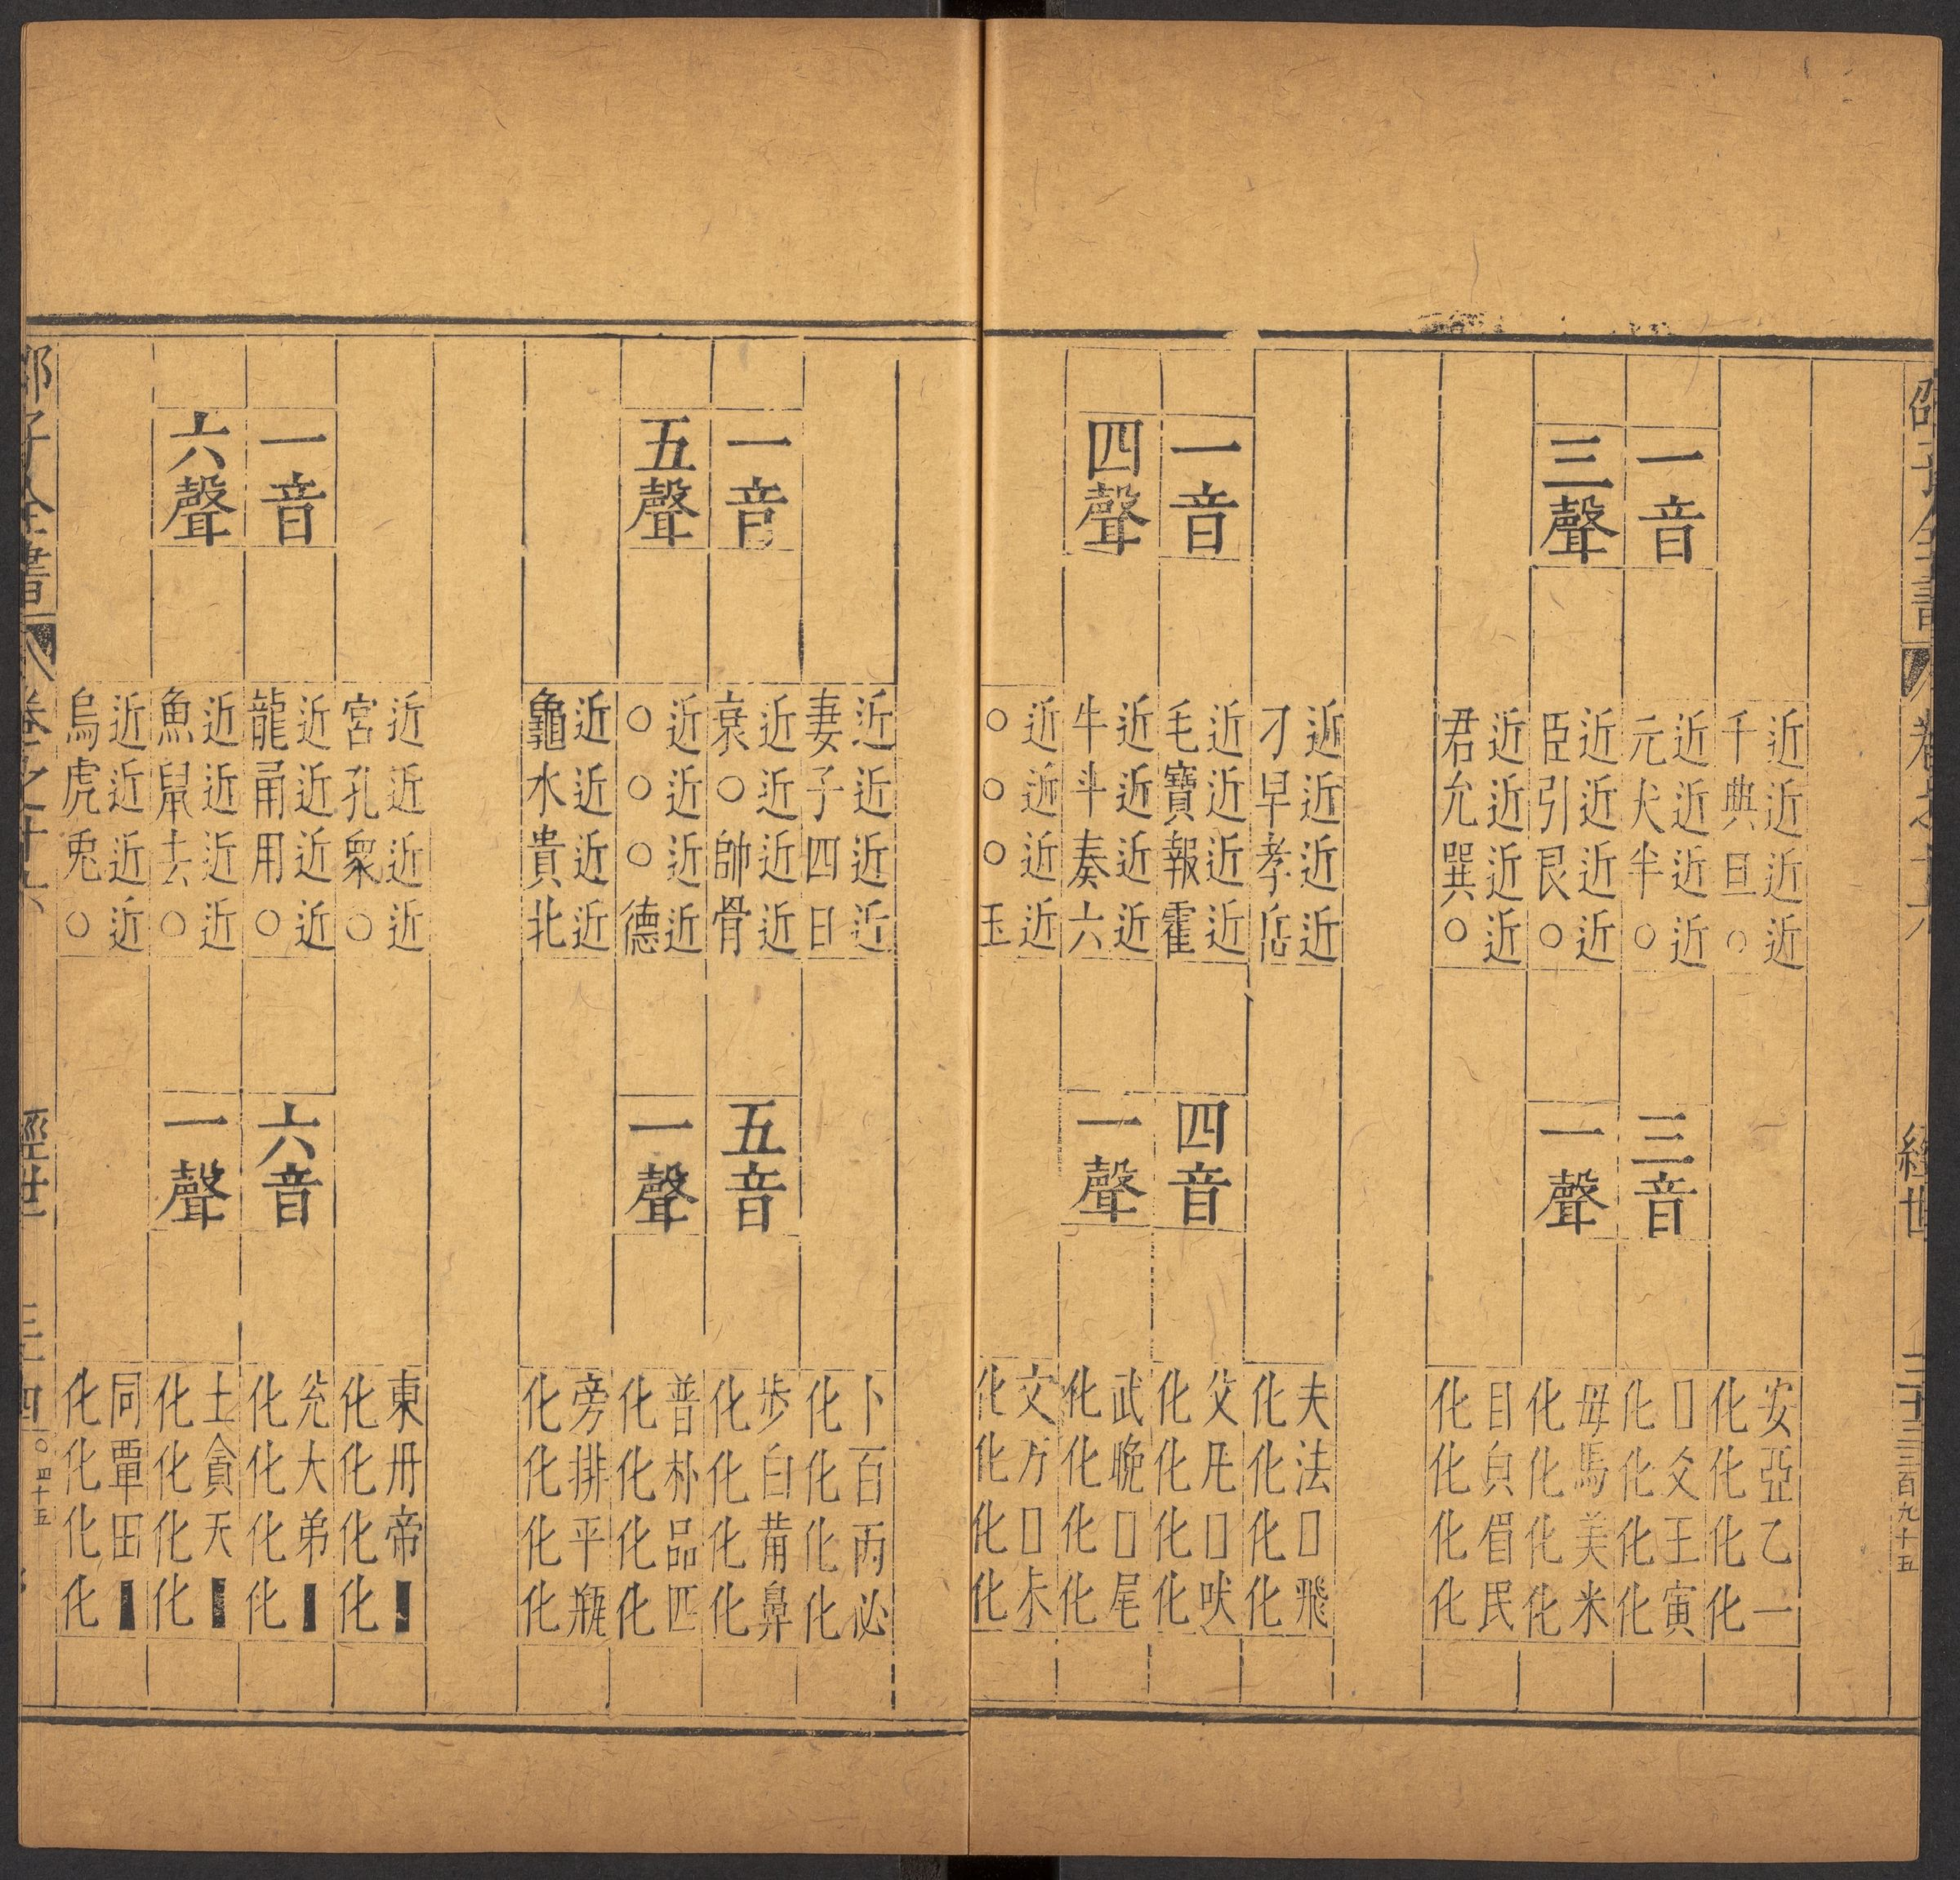 邵子全書 卷之十六 經世 三十三 三百九十五
一音
三聲
近近近近
千典旦○
近近近近
元犬半○
近近近近
臣引艮○
近近近近
君允巽○
三音
一聲
安亞乙一
化化化化
□爻王寅
化化化化
母馬美米
化化化化
目皃眉民
化化化化
一音
四聲
近近近近
刁早孝岳
近近近近
毛寶報霍
近近近近
牛斗奏六
近近近近
○○○玉
四音
一聲
夫法□飛
化化化化
父凡□吠
化化化化
武晚□尾
化化化化
文万□未
化化化化
一音
五聲
近近近近
妻子四日
近近近近
衰○帥骨
近近近近
○○○德
近近近近
龜水貴北
五音
一聲
卜百丙必
化化化化
步白葡鼻
化化化化
普朴品匹
化化化化
旁排平瓶
化化化化
一音
六聲
近近近近
宮孔眾○
近近近近
龍甬用○
近近近近
魚鼠去○
近近近近
烏虎兎○
六音
一聲
東丹帝■
化化化化
兊大弟■
化化化化
土貪天■
化化化化
同覃田■
化化化化
邵子全書 卷之十六 經世 三十四 ○四十五